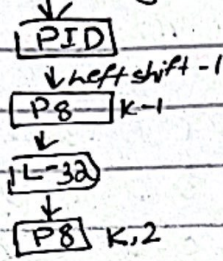 PID
Left shift-1
P8 K-1
L-32
P8 K,2